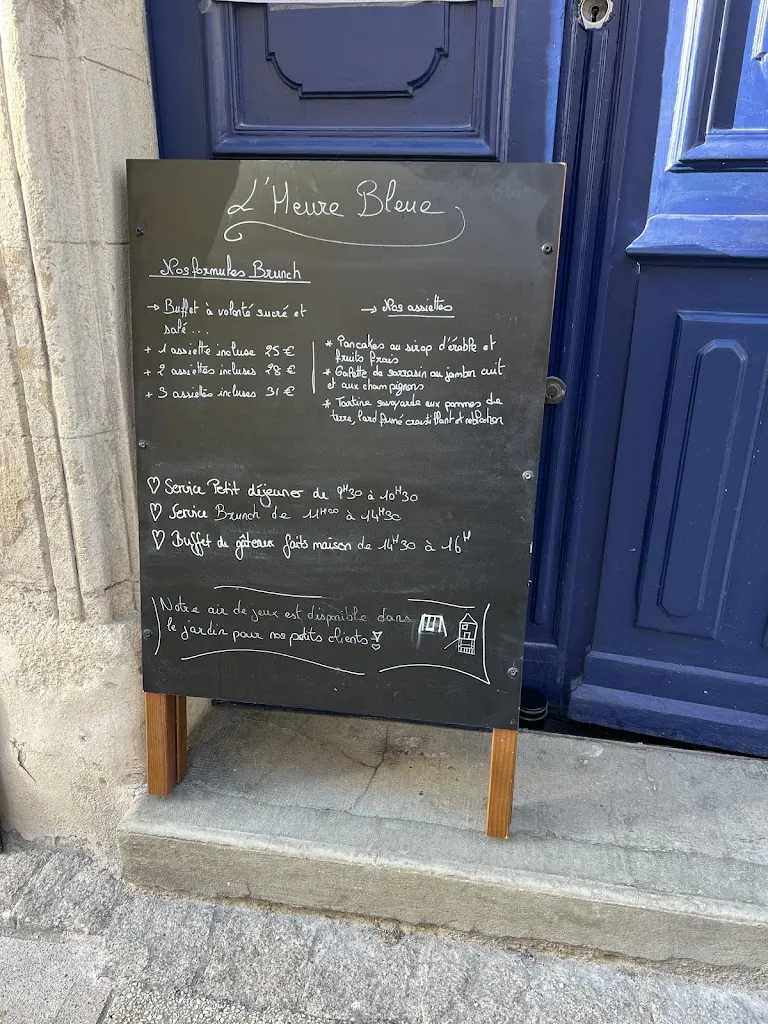 L'Heure Bleue
Nos formules Brunch
→ Buffet à volonté sucré et
salé ...
+ 1 assiette incluse 25 €
+ 2 assiettes incluses 28 €
+ 3 assiettes incluses 31 €
→ Nos assiettes
* Pancakes au sirop d'érable et
fruits frais
* Galette de sarrasin au jambon cuit
et aux champignons
* Tartine savoyarde aux pommes de
terre, lard fumé croustillant et reblochon
♡ Service Petit déjeuner de 9H30 à 10H30
♡ Service Brunch de 11H00 à 14H30
♡ Buffet de gâteaux faits maison de 14H30 à 16H
Notre air de jeux est disponible dans
le jardin pour nos petits clients !